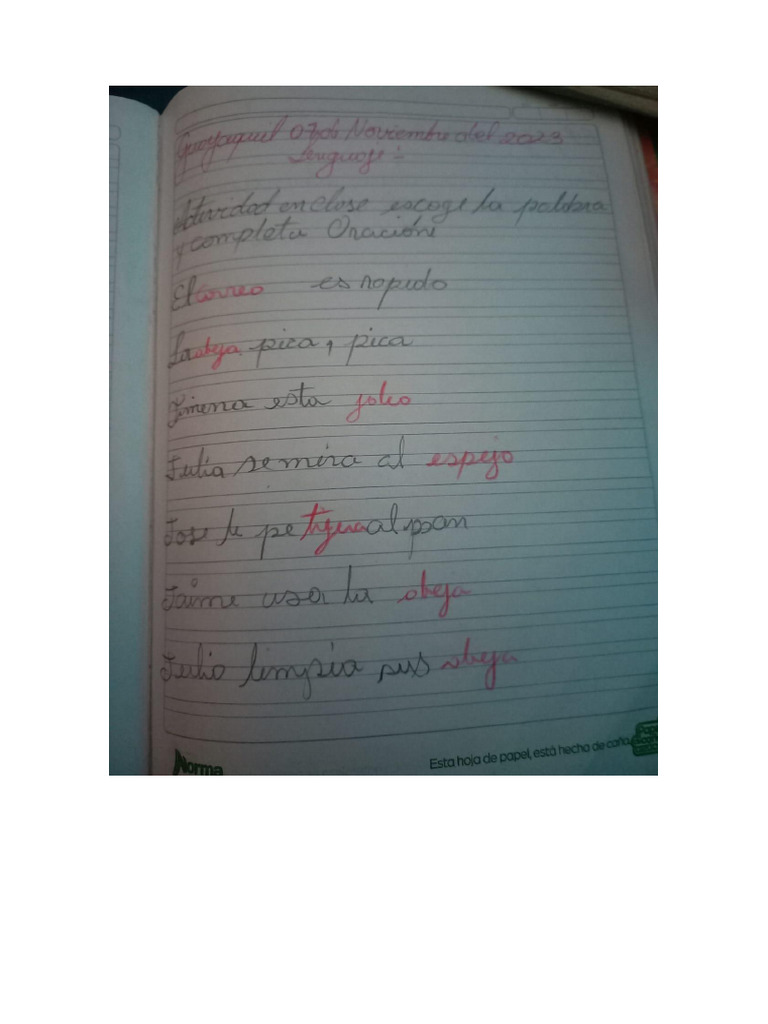 Guayaquil 07 de Noviembre del 2023
Lenguaje :-
Actividad en clase escoge la palabra
y completa Oracióne
El correo es rapido
La abeja pica, pica
Jimena esta
Julia se mira al espejo
Jose le pe tijera al pan
Jaime usa la abeja
Julio limpia sus abeja
Norma
Esta hoja de papel, está hecha de caña